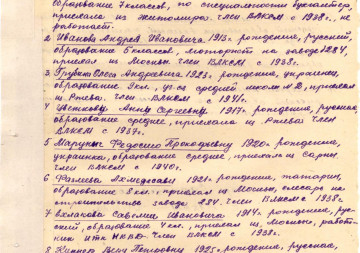 образование 7 классов, по специальности бухгалтер,
приехала из Житомира. Член ВЛКСМ с 1938 г., не
работает.
2. Иванова Андрея Ивановича 1913 г. рождения, русский,
образование 5 классов, моторист на заводе 1224,
приехал из Москвы. Член ВЛКСМ с 1938.
3. Андреевича 1923 г. рождения, украинец
образование 9 кл., уч-ся средней школы № 2, приехал
из Член ВЛКСМ с 1941 г.
4. Цветкову Анну Сергеевну 1917 г. рождения, русская,
образование среднее, приехала из Член
ВЛКСМ с 1937 г.
5. Федосию Прокофьевну 1920 г. рождения,
украинка, образование среднее, приехала из Сарны.
Член ВЛКСМ с 1940 г.
6. 1921 г. рождения, татарин,
образование 8 кл., приехал из Москвы, слесарь на
заводе 234. Член ВЛКСМ с 1938 г.
7. Савелия Ивановича 1914 г. рождения, рус-
ский, образование 4 кл., приехал из Москвы, работ-
ник НКВД. Член ВЛКСМ с 1938 г.
8. Веру Петровну 1925 г. рождения, русская,